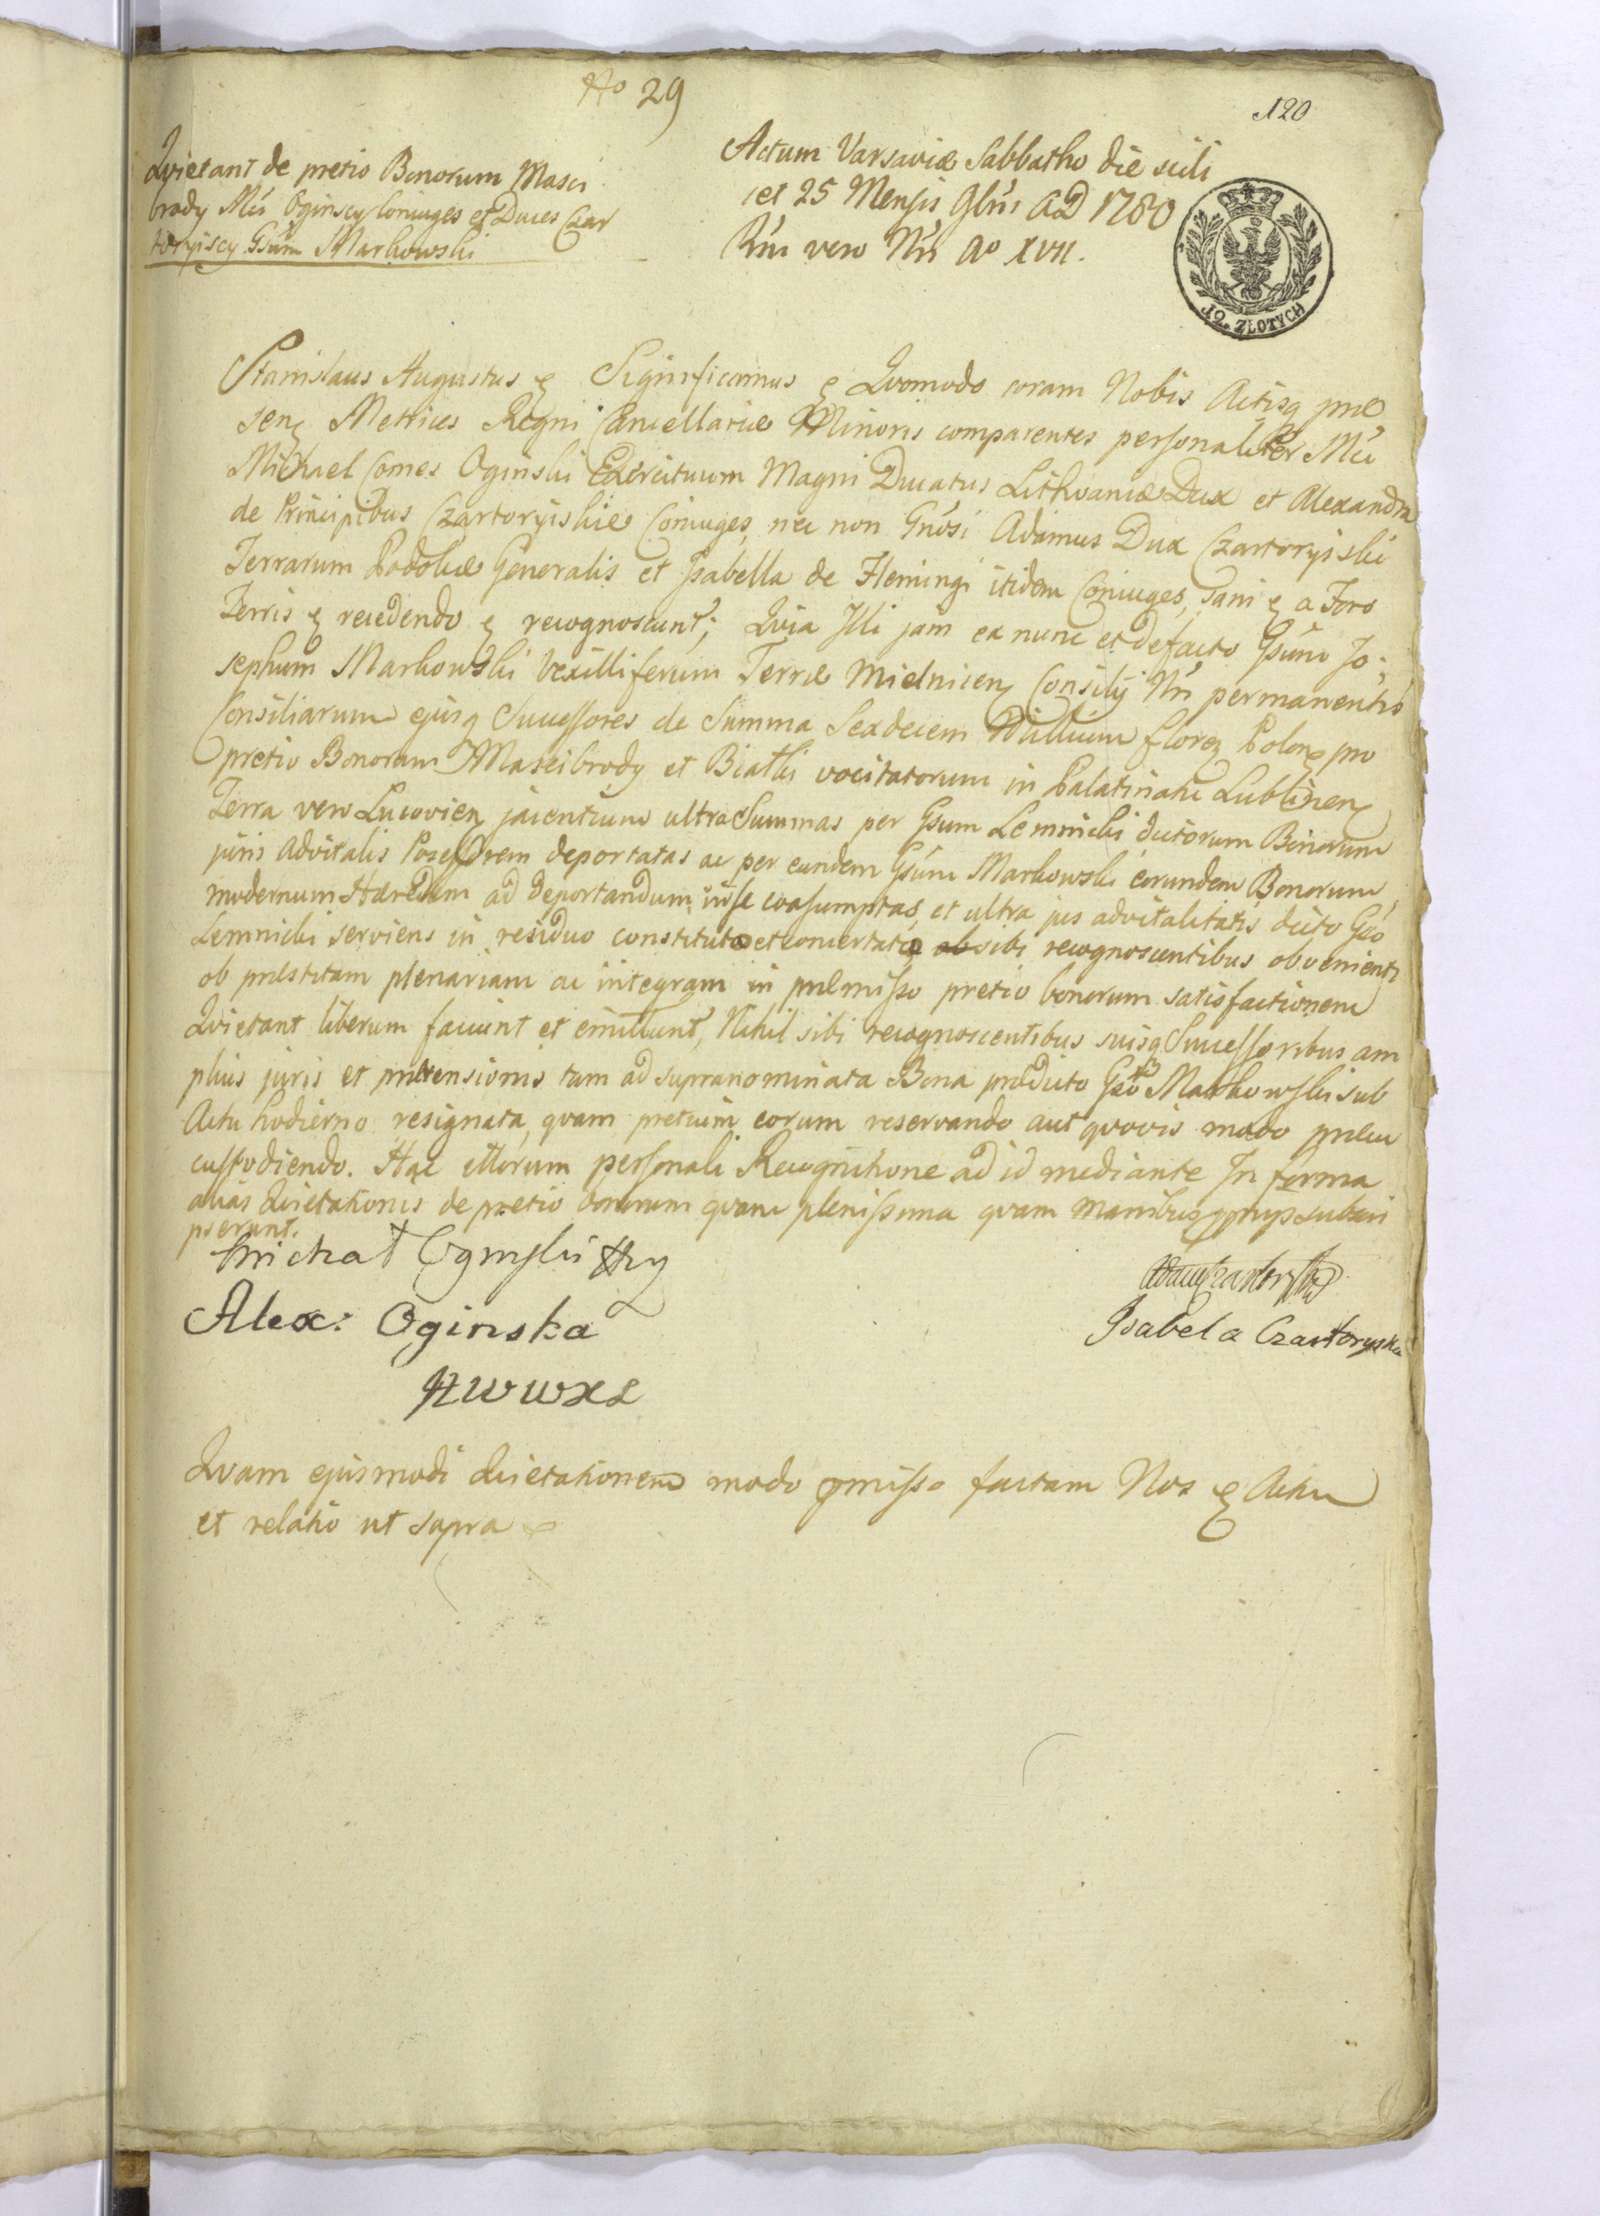 No 29
120
Qvietant de pretio Bonorum Masci
brody Mci Oginscy Coniuges et Duces Czar
toryiscy Gsum Markowski
Actum Varsaviæ Sabbatho die scili
cet 25 Mensis 9bris AD 1780
Rni vero Nri Ao XVII.
12. ZŁOTYCH
Stanislaus Augustus Significamus Qvomodo coram Nobis Actisq præ
sen Metrices Regni Cancellariæ Minoris comparentes personaliter Mci
Michael Comes Oginski Exercituum Magni Ducatus Lithvaniæ Dux et Alexandra
de Principibus Czartoryiskie Coniuges, nec non Gnosi Adamus Dux Czartoryiski
Terrarum Podoliæ Generalis et Isabella de Flemingi itidem Coniuges, Sani a Foro
Terris recedendo recognoscunt; Qvia Illi jam ex nunc et defacto Gsum Jo
sephum Markowski Vexilliferum Terræ Mielnicen Consilij Nri permanentis
Consiliarum ejusq Successores de Summa Sexdecem Millium floren Polon pro
pretio Bonorum Mascibrody et Białki vocitatorum in Palatinatu Lublinen
Terra vero Lucovien jacentium ultra Summas per Gsum Lemnicki dictorum Bonorum
juris advitalis Possessorem deportatas ac per eundem Gsum Markowski eorundem Bonorum
modernum Hæredem ad deportandum in se coasumptas, et ultra jus advitalitatis dicto Gso
Lemnicki serviens in residuo constituto et concertato ab sibi recognoscentibus obvenienti
ob præstitam plenariam ac integram in præmisso pretio bonorum satisfactionem
Qvietant liberum faciunt et emittunt, Nihil sibi recognoscentibus suisq Successoribus am
plius juris et prætensionis tam ad supranominata Bona prædicto Gso Markowski sub
Actu hodierno resignata, qvam pretium eorum reservando aut qvovis modo præcu
custodiendo. Hac ittorum personali Recognitione ad id mediante In forma
alias Qvietationis de pretio bonorum qvam plenissima qvam manibus pprijs subscri
pserunt.
Michał Oginski
Alex: Oginska
HWWXL
Adam Czartoryski
Isabela Czartoryska
Qvam ejusmodi Qvietationem modo pmisso factam Nos Actu
et relatio ut supra